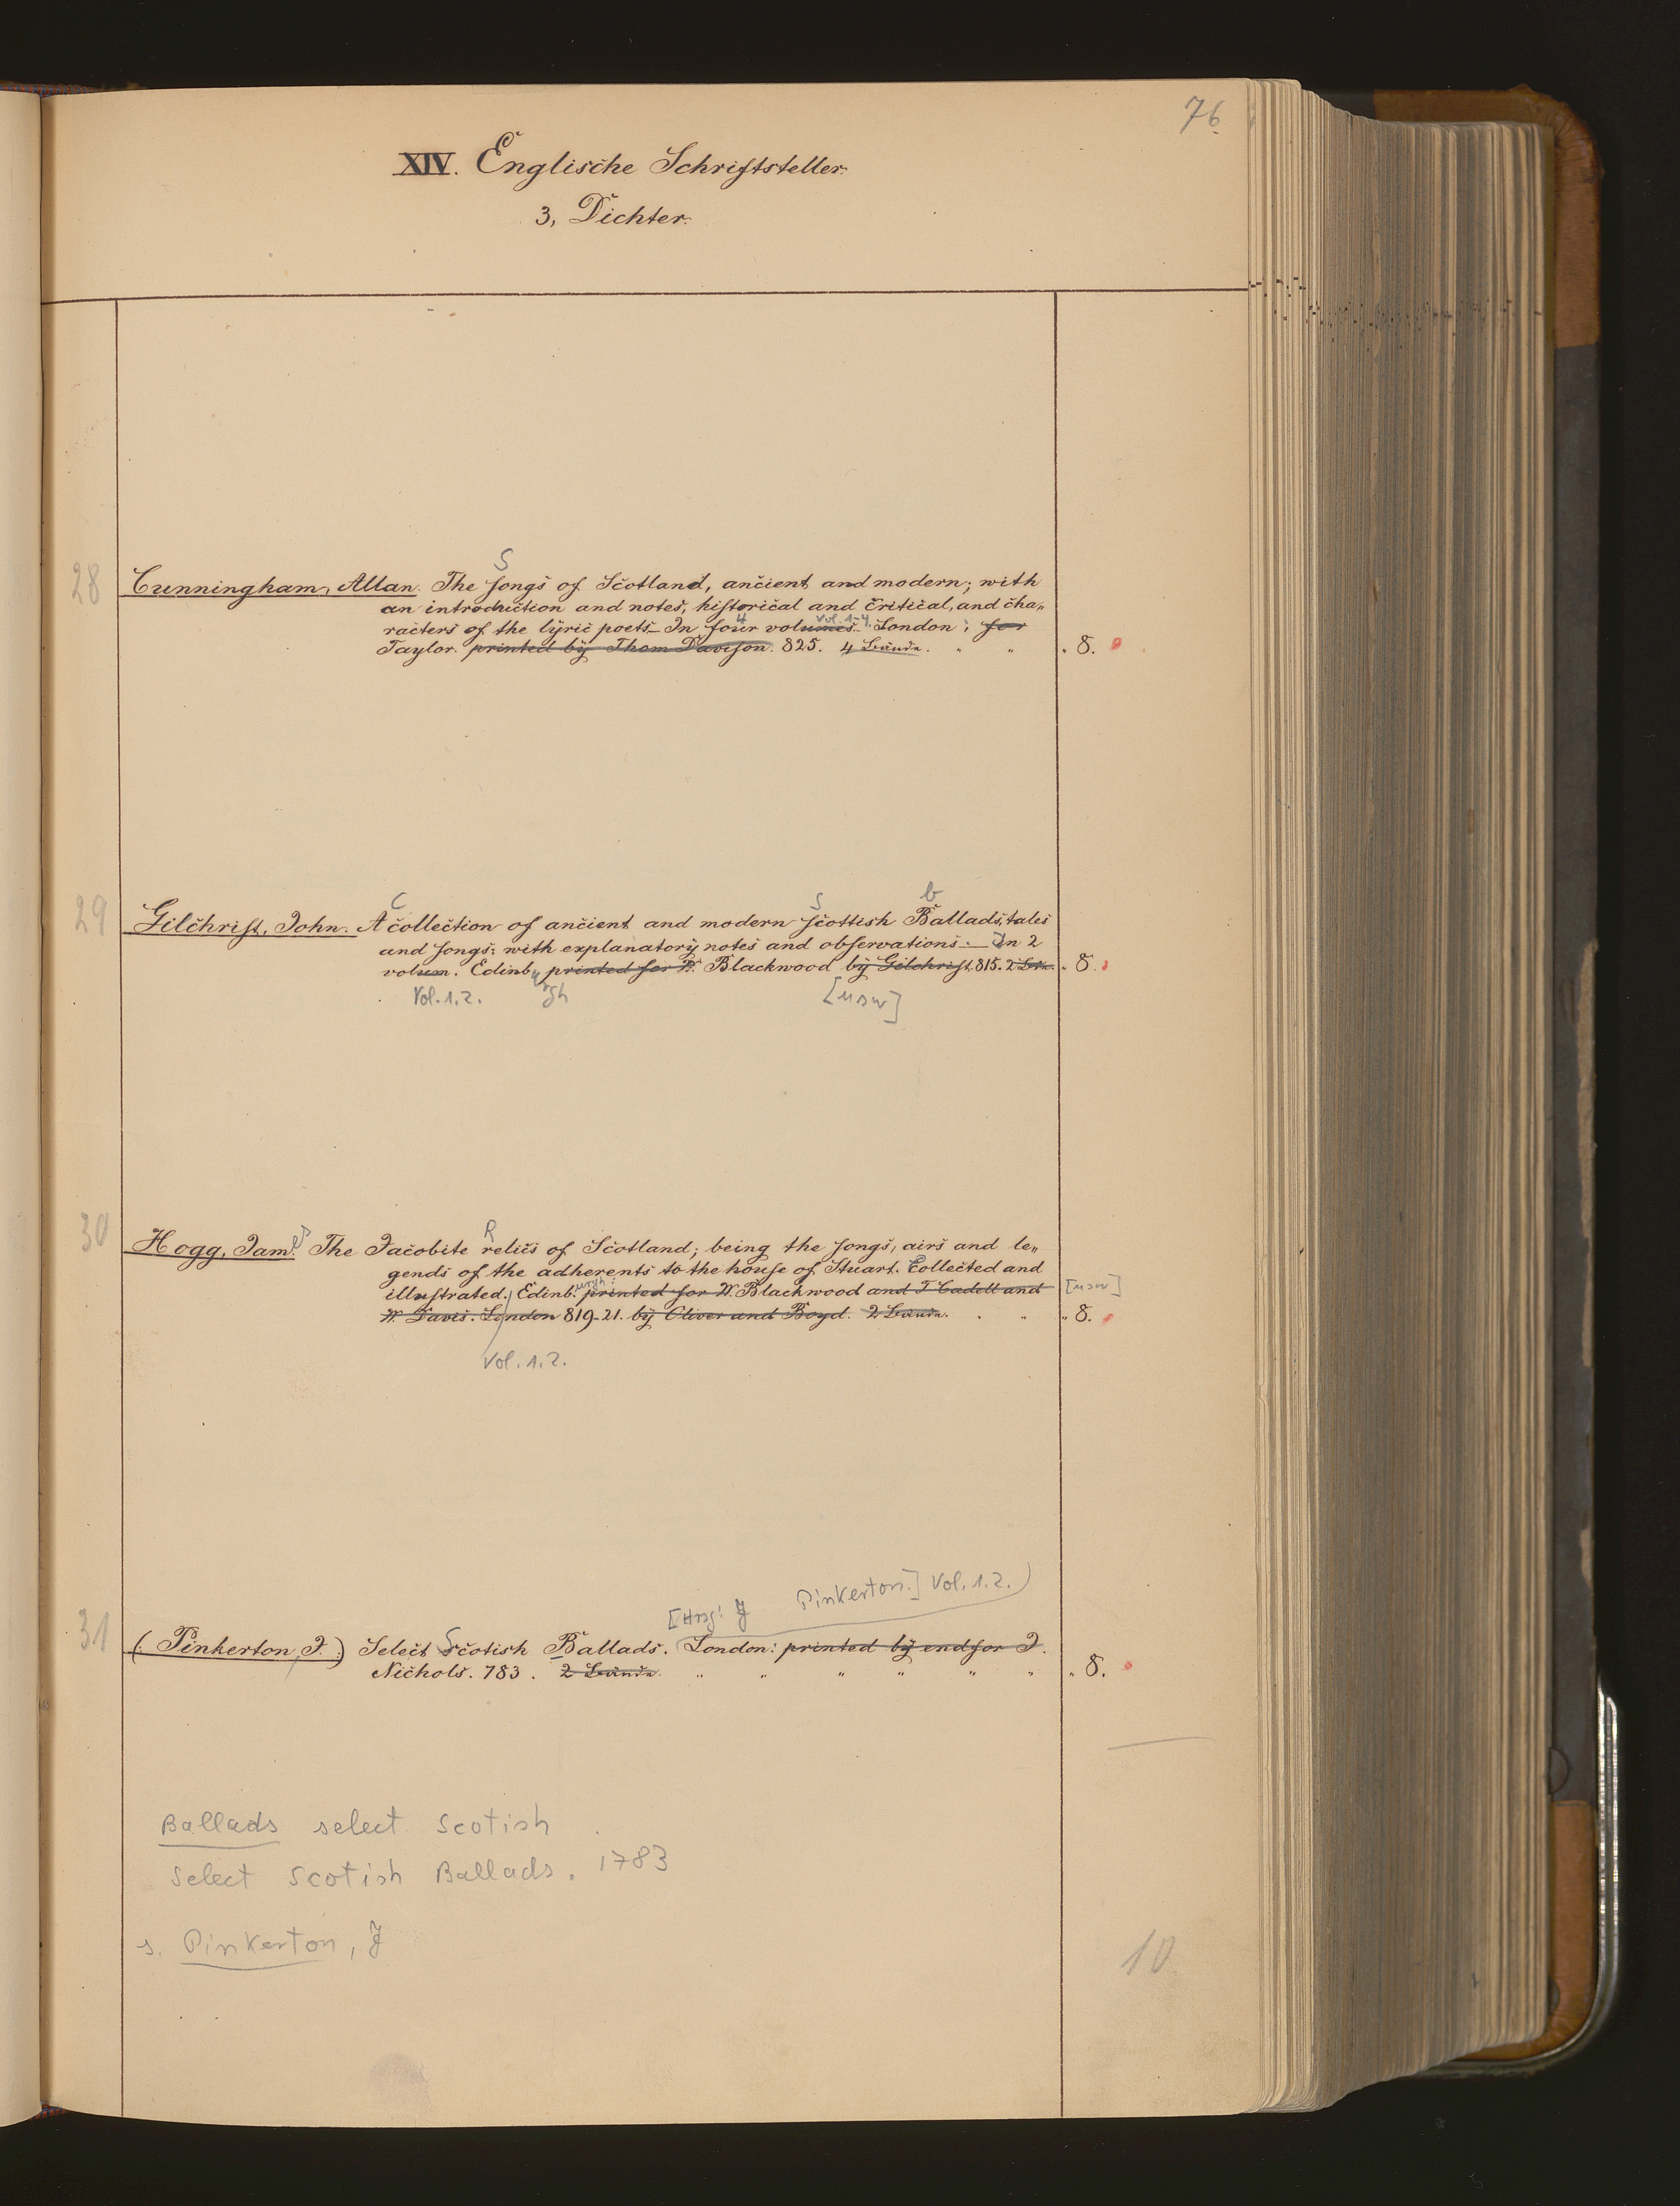 76
XIV. Englische Schriftsteller.
3, Dichter.
S
28 Cunningham, Allan. The songs of Scotland, ancient and modern; with
an introduction and notes, historical and critical, and cha-
4 Vol. 1-4.
racters of the lyric poets – In four volumes – London: for
Taylor. printed by Thom Davison. 825. 4 Bände. " " " 8.
C S b
29 Gilchrist, John. A collection of ancient and modern scottish Ballads, tales
and songs: with explanatory notes and observations. – In 2
volum. Edinb. printed for W. Blackwood by Gilchrist. 815. 2 Bde. " 8.
Vol. 1.2. urgh [usw]
R
30 Hogg, James. The Jacobite relics of Scotland; being the songs, airs and le-
gends of the adherents to the house of Stuart. Collected and
urgh:
illustrated. Edinb. printed for W. Blackwood and T Cadell and [usw]
W. Davis. London 819-21. by Oliver and Boyd. 2 Bände. " " " 8.
Vol. 1.2.
[Hrsg: J Pinkerton.] Vol. 1.2.)
31 (: Pinkerton, J. :) Select Scotish Ballads. London: printed by end for J.
Nichols. 783. 2 Bände. " " " " " " " 8.
Ballads select Scotish
Select Scotish Ballads. 1783
s. Pinkerton, J
10